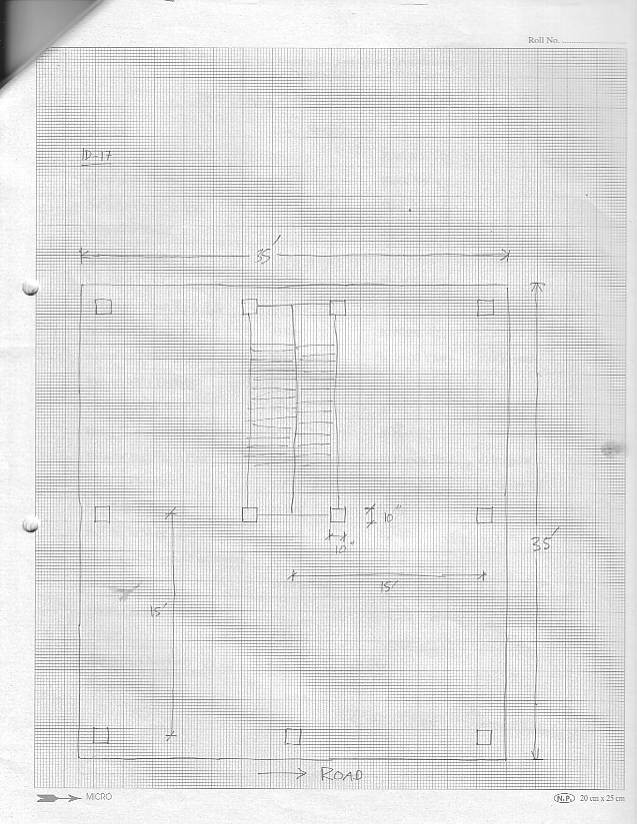 Roll No. ..................
ID-17
35'
10"
10"
35'
15'
15'
ROAD
MICRO
N.P. 20 cm x 25 cm